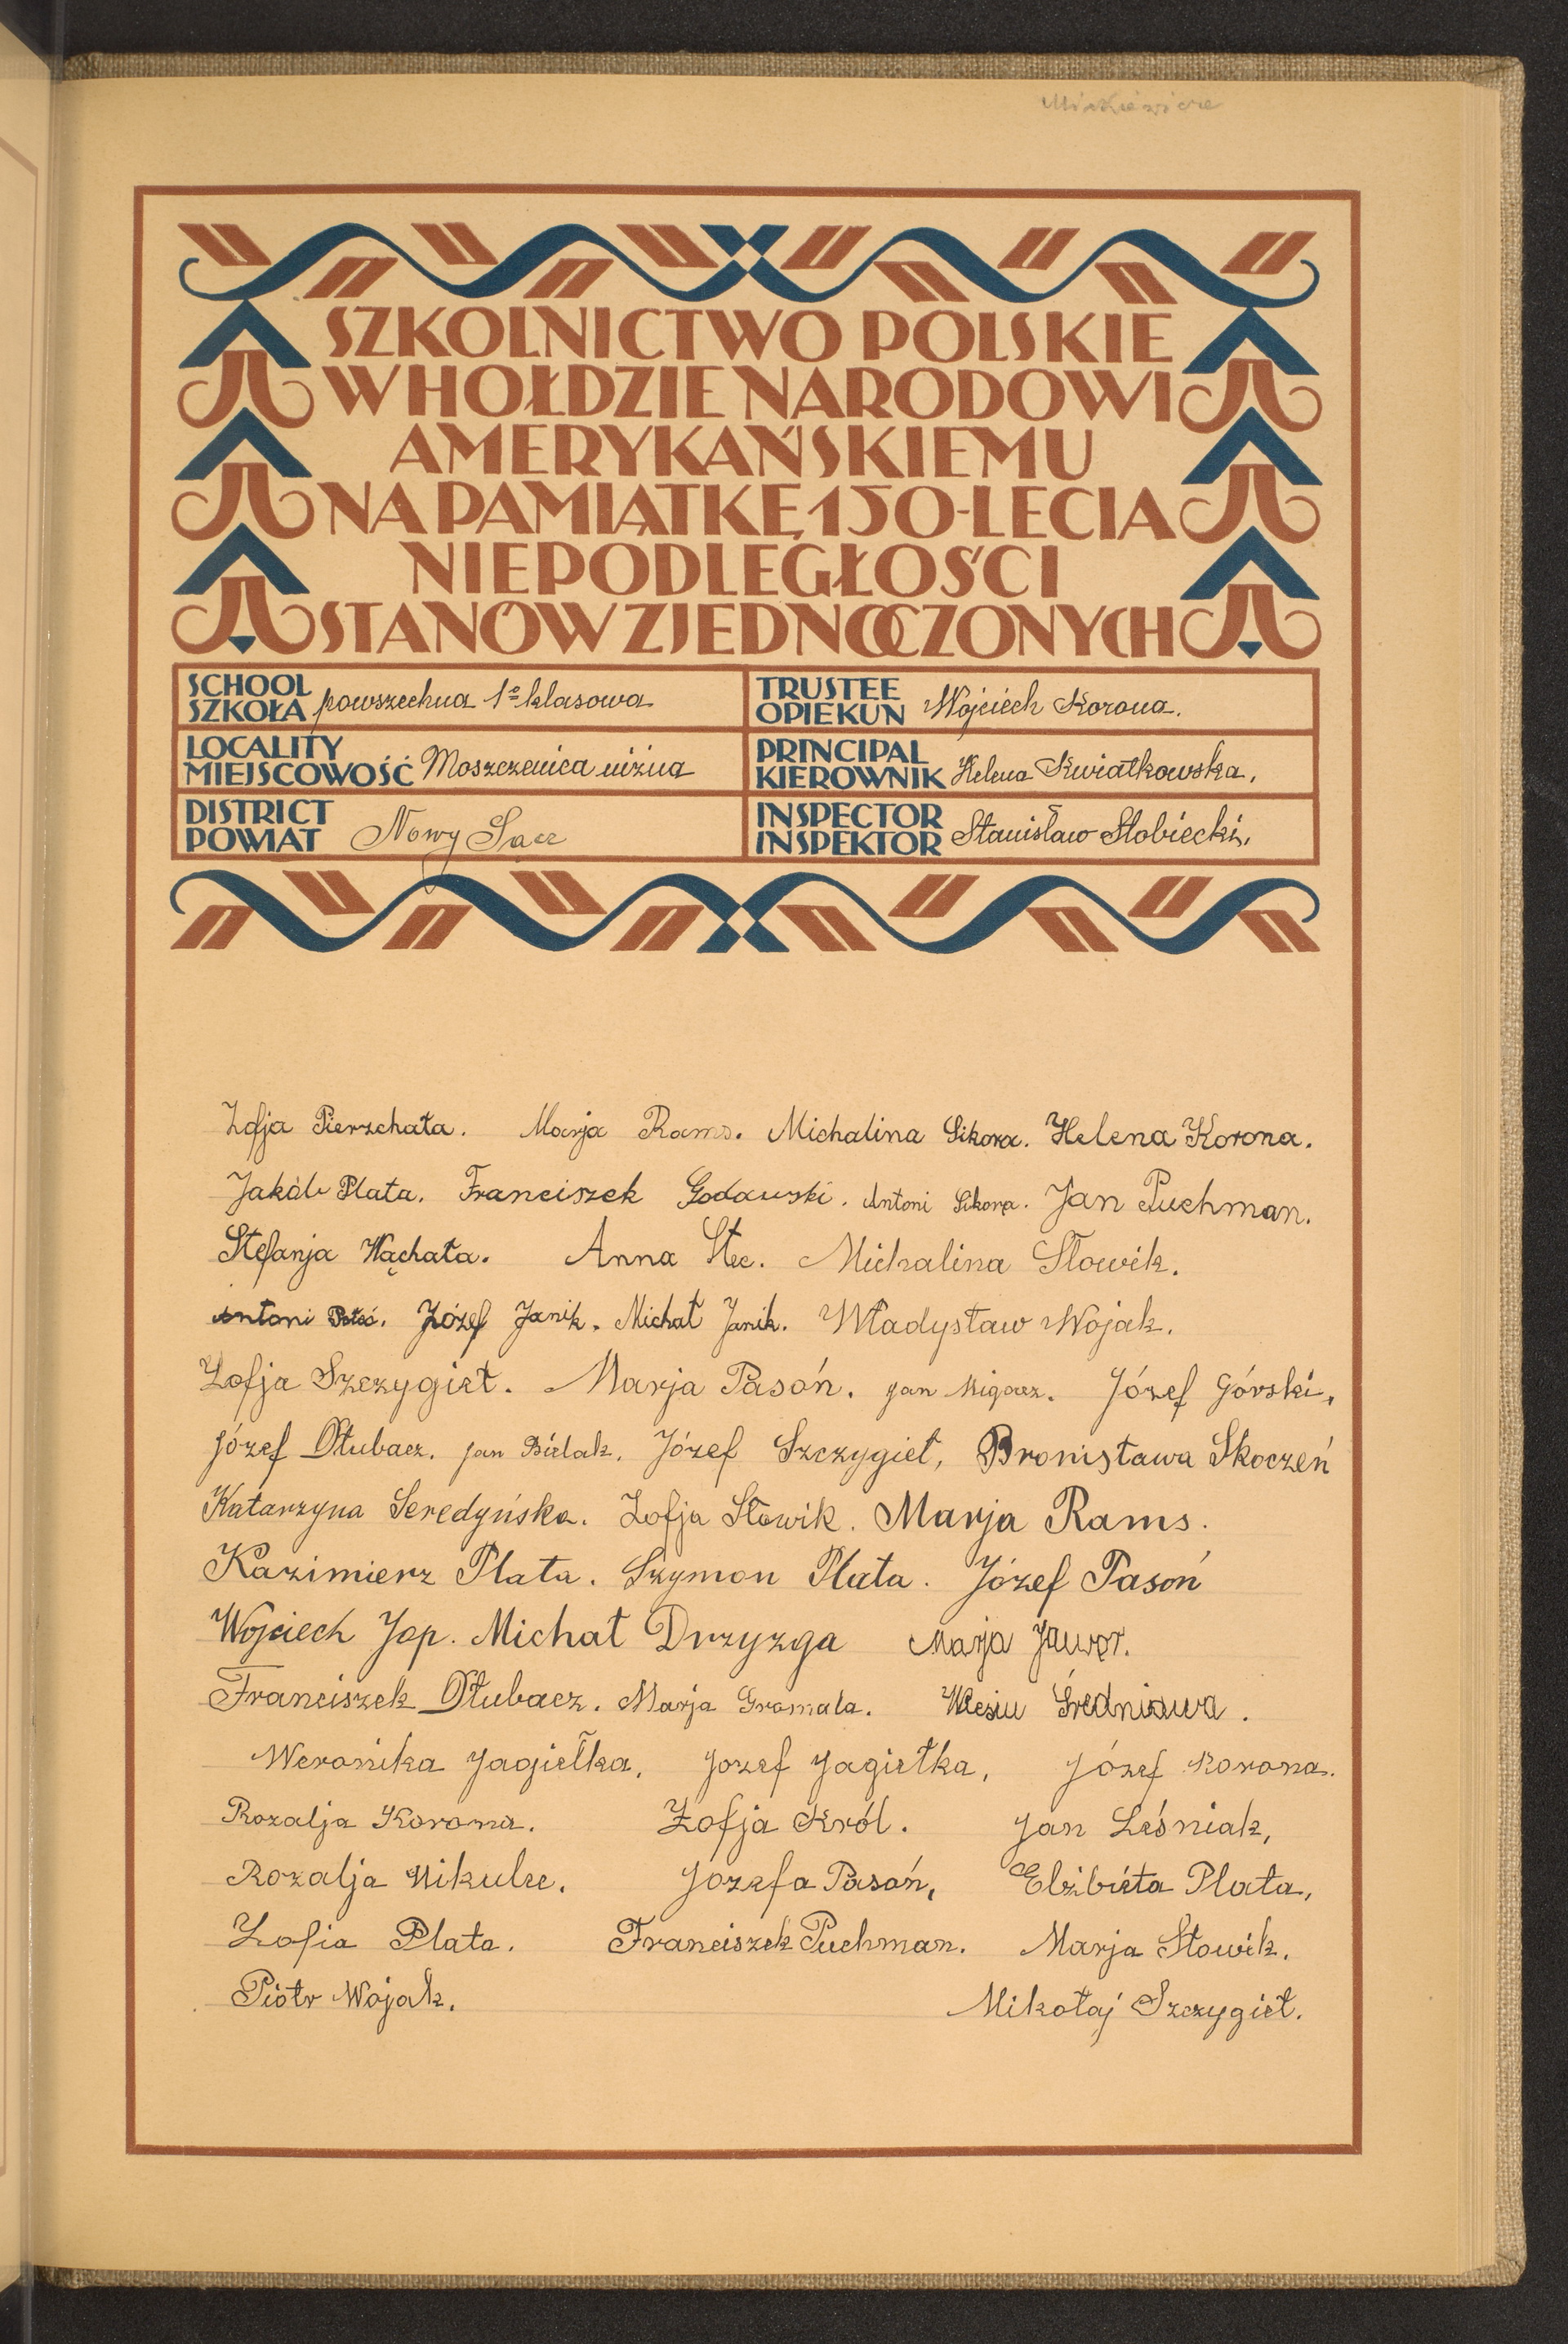 SZKOLNICTWO POLSKIE
W HOŁDZIE NARODOWI
AMERYKAŃSKIEMU
NA PAMIĄTKĘ 150-LECIA
NIEPODLEGŁOŚCI
STANÓW ZJEDNOCZONYCH
SCHOOL
SZKOŁA powszechna 1º klasowa
TRUSTEE
OPIEKUN Wojciech Korona.
LOCALITY
MIEJSCOWOŚĆ Moszczenica niżna
PRINCIPAL
KIEROWNIK Helena Kwiatkowska,
DISTRICT
POWIAT Nowy Sącz
INSPECTOR
INSPEKTOR Stanisław Słobiecki,
Zofja Pierzchała. Marja Rams. Michalina Sikora. Helena Korona.
Jakób Plata. Franciszek Godawski. Antoni Sikora. Jan Puchman.
Stefanja Wąchała. Anna Stec. Michalina Słowik.
Antoni Józef Janik. Michał Janik. Władysław Wojak.
Zofja Szczygieł. Marja Pasoń. Jan Migacz. Józef Górski,
Józef Dłubacz. Jan Bielak. Józef Szczygieł, Bronisława Skoczeń
Katarzyna Seredyńska. Zofja Słowik. Marja Rams.
Kazimierz Plata. Szymon Plata. Józef Pasoń
Wojciech Jop. Michał Drzyzga Marja Jawor.
Franciszek Dłubacz. Marja Gromala. Średniawa.
Weronika Jagiełka, Jozef Jagiełka, Józef Korona.
Rozalja Korona. Zofja Król. Jan Leśniak,
Rozalja Mikulec. Józefa Pasoń, Elżbieta Plata,
Zofia Plata. Franciszek Puchman. Marja Słowik.
Piotr Wojak. Mikołaj Szczygieł.